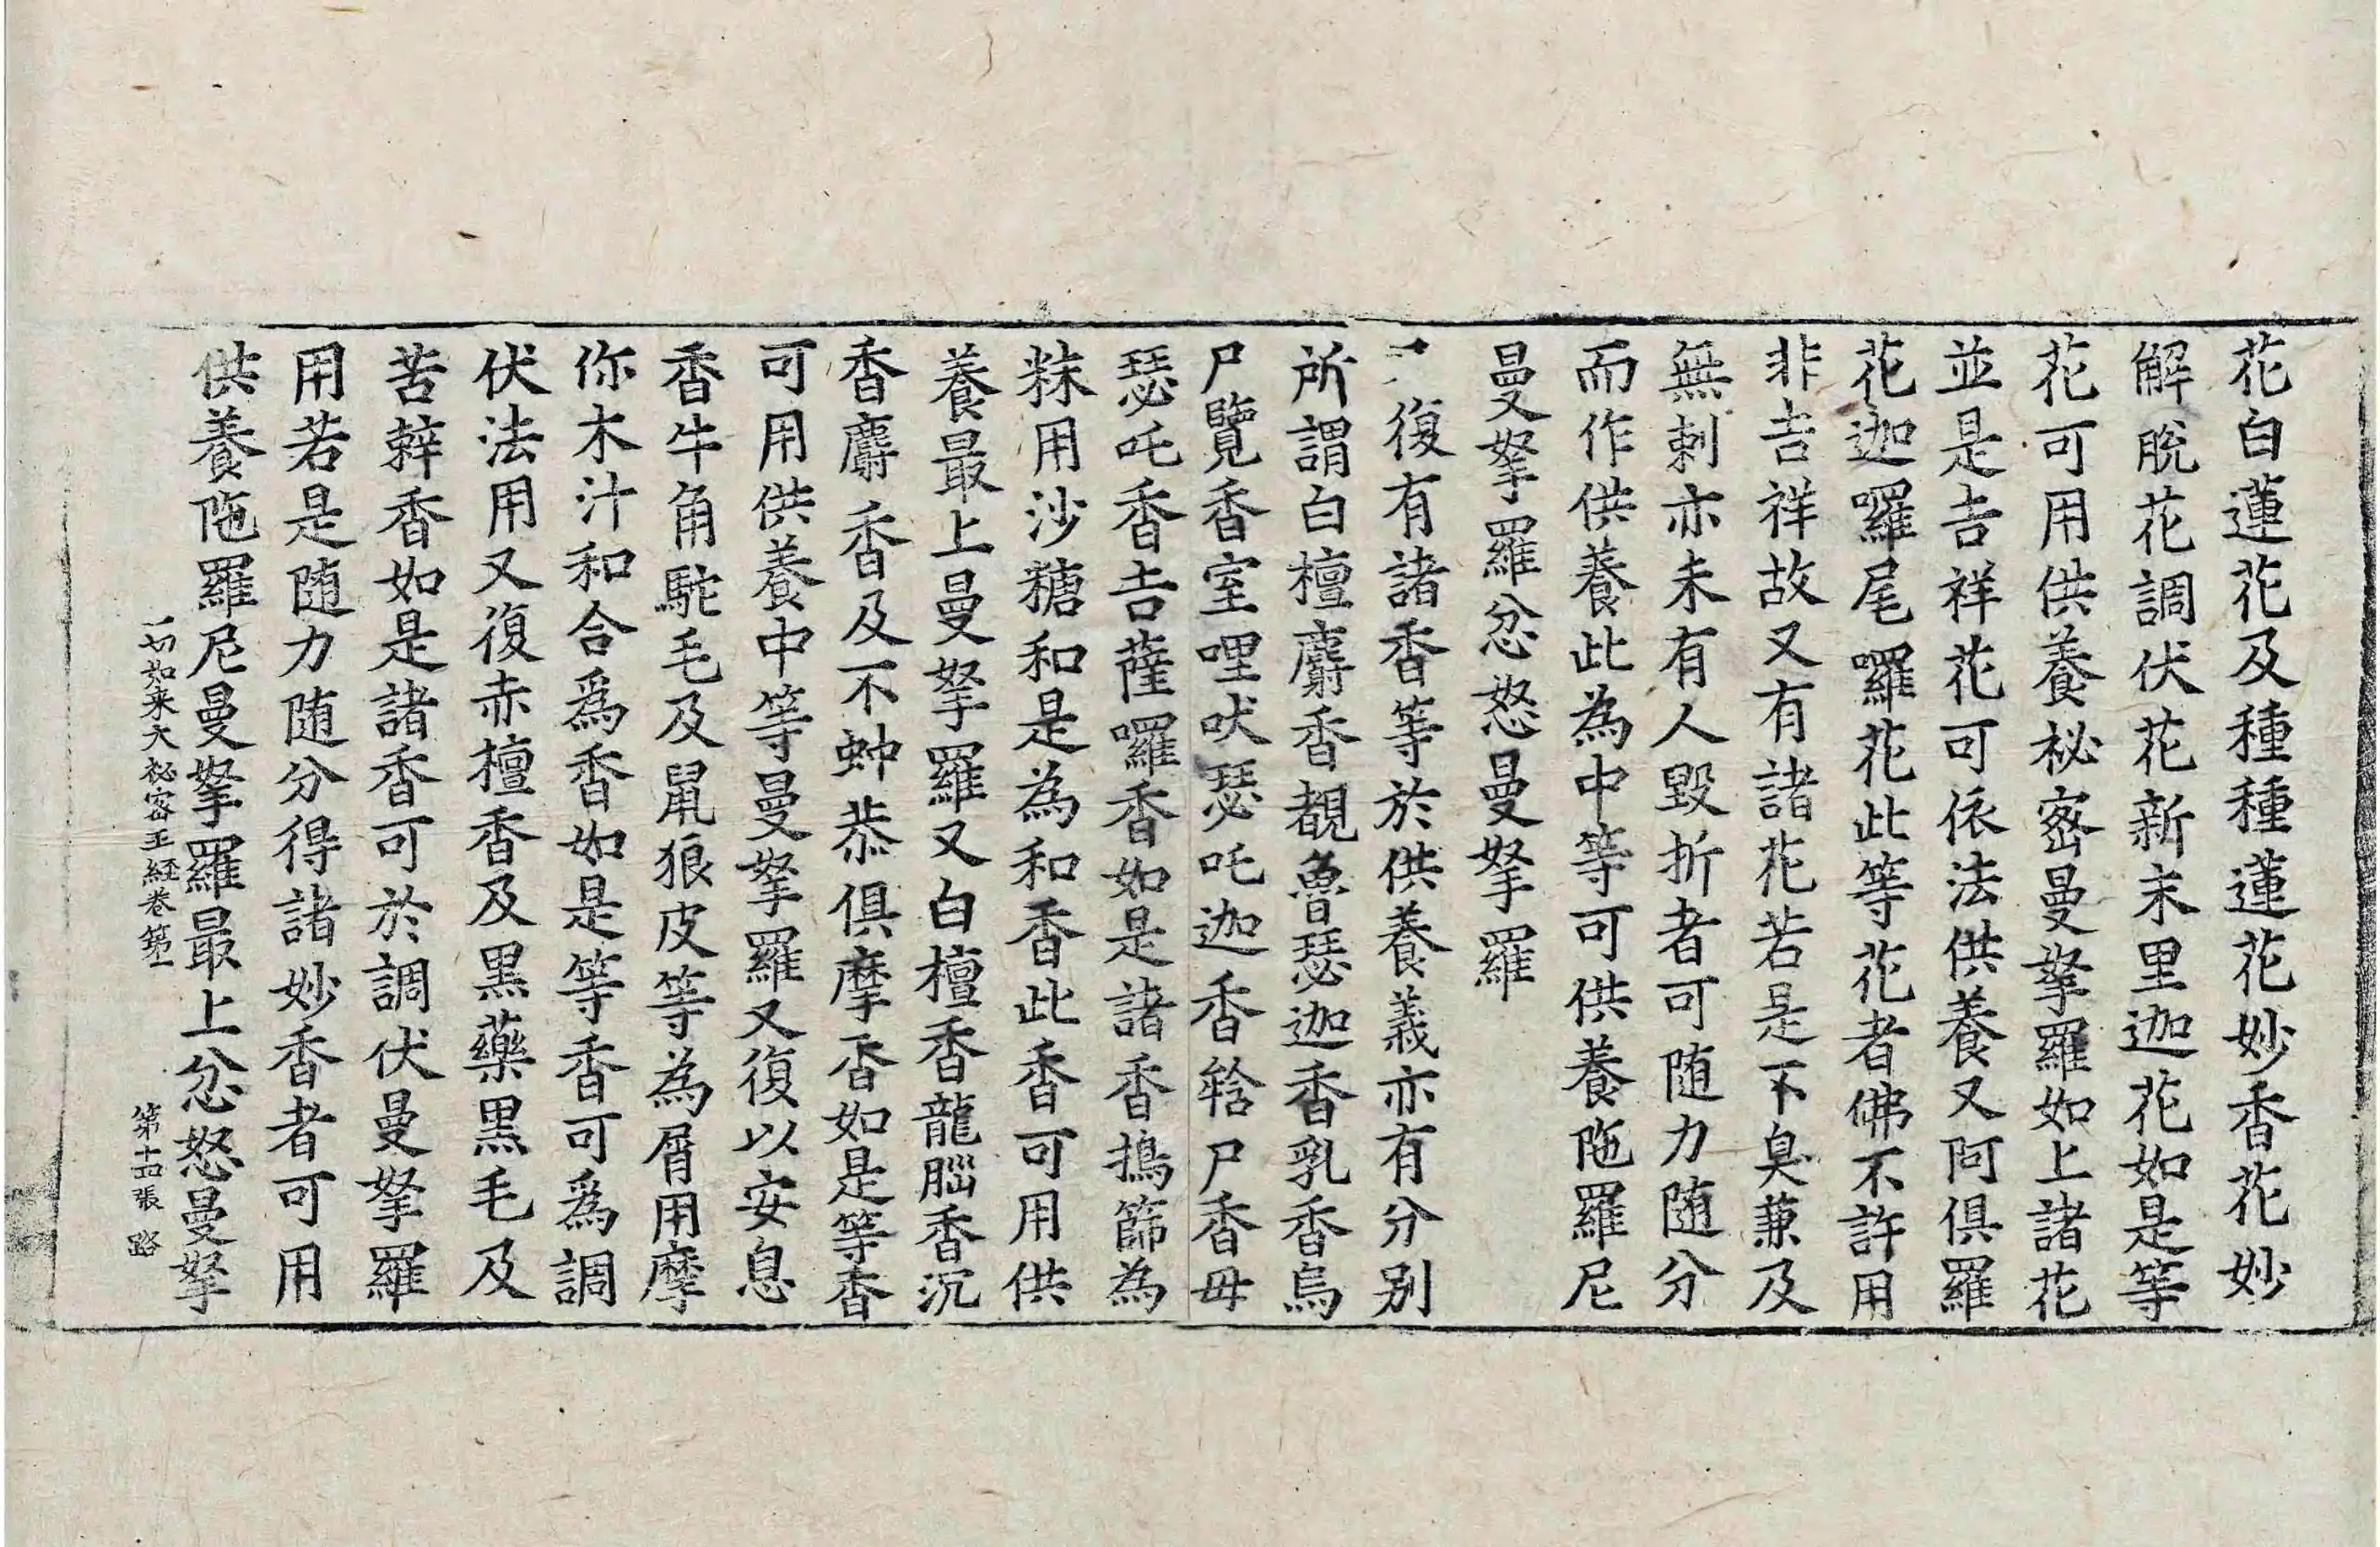 花白蓮花及種種蓮花妙香花妙
解脫花調伏花新末里迦花如是等
花可用供養秘密曼拏羅如上諸花
並是吉祥花可依法供養又阿俱羅
花迦囉尾囉花此等花者佛不許用
非吉祥故又有諸花若是不臭兼及
無刺亦未有人毀折者可随力随分
而作供養此為中等可供養陁羅尼
曼拏羅忿怒曼拏羅
復有諸香等於供養義亦有分別
所謂白檀麝香覩魯瑟迦香乳香烏
尸覽香室哩吠瑟吒迦香韐尸香毋
瑟吒香吉薩囉香如是諸香擣篩為
粖用沙糖和是為和香此香可用供
養最上曼拏羅又白檀香龍腦香沉
香麝香及不蚛恭俱摩香如是等香
可用供養中等曼拏羅又復以安息
香牛角駝毛及鼠狼皮等為屑用摩
你木汁和合爲香如是等香可爲調
伏法用又復赤檀香及黑藥黑毛及
苦辢香如是諸香可於調伏曼拏羅
用若是随力随分得諸妙香者可用
供養陁羅尼曼拏羅最上忿怒曼拏
一切如来大秘密王経卷第一　第十四張　路